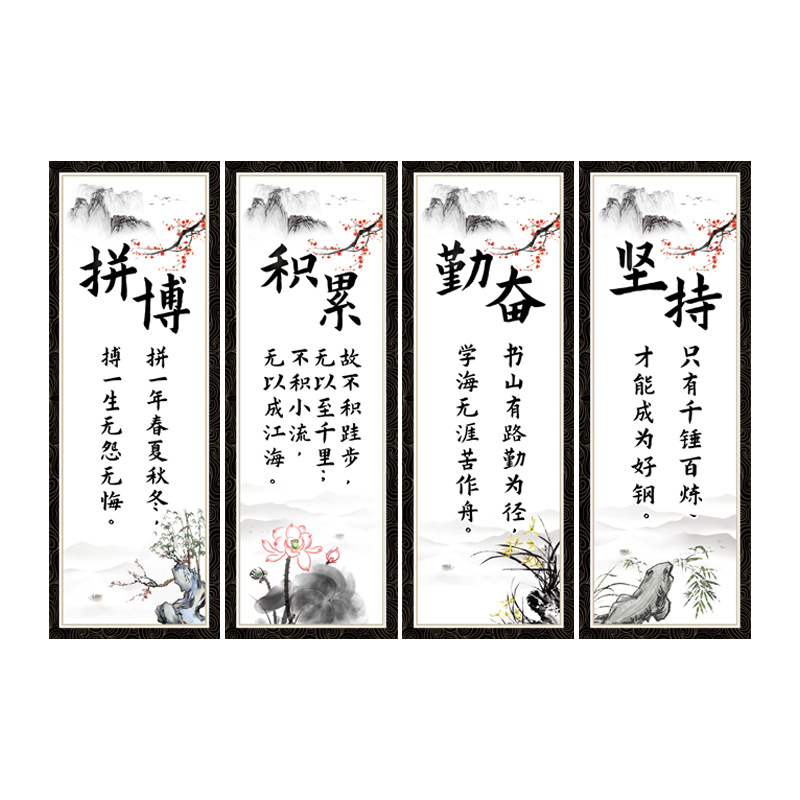 拼博
拼一年春夏秋冬，
搏一生无怨无悔。
积累
故不积跬步，
无以至千里；
不积小流，
无以成江海。
勤奋
书山有路勤为径，
学海无涯苦作舟。
坚持
只有千锤百炼、
才能成为好钢。